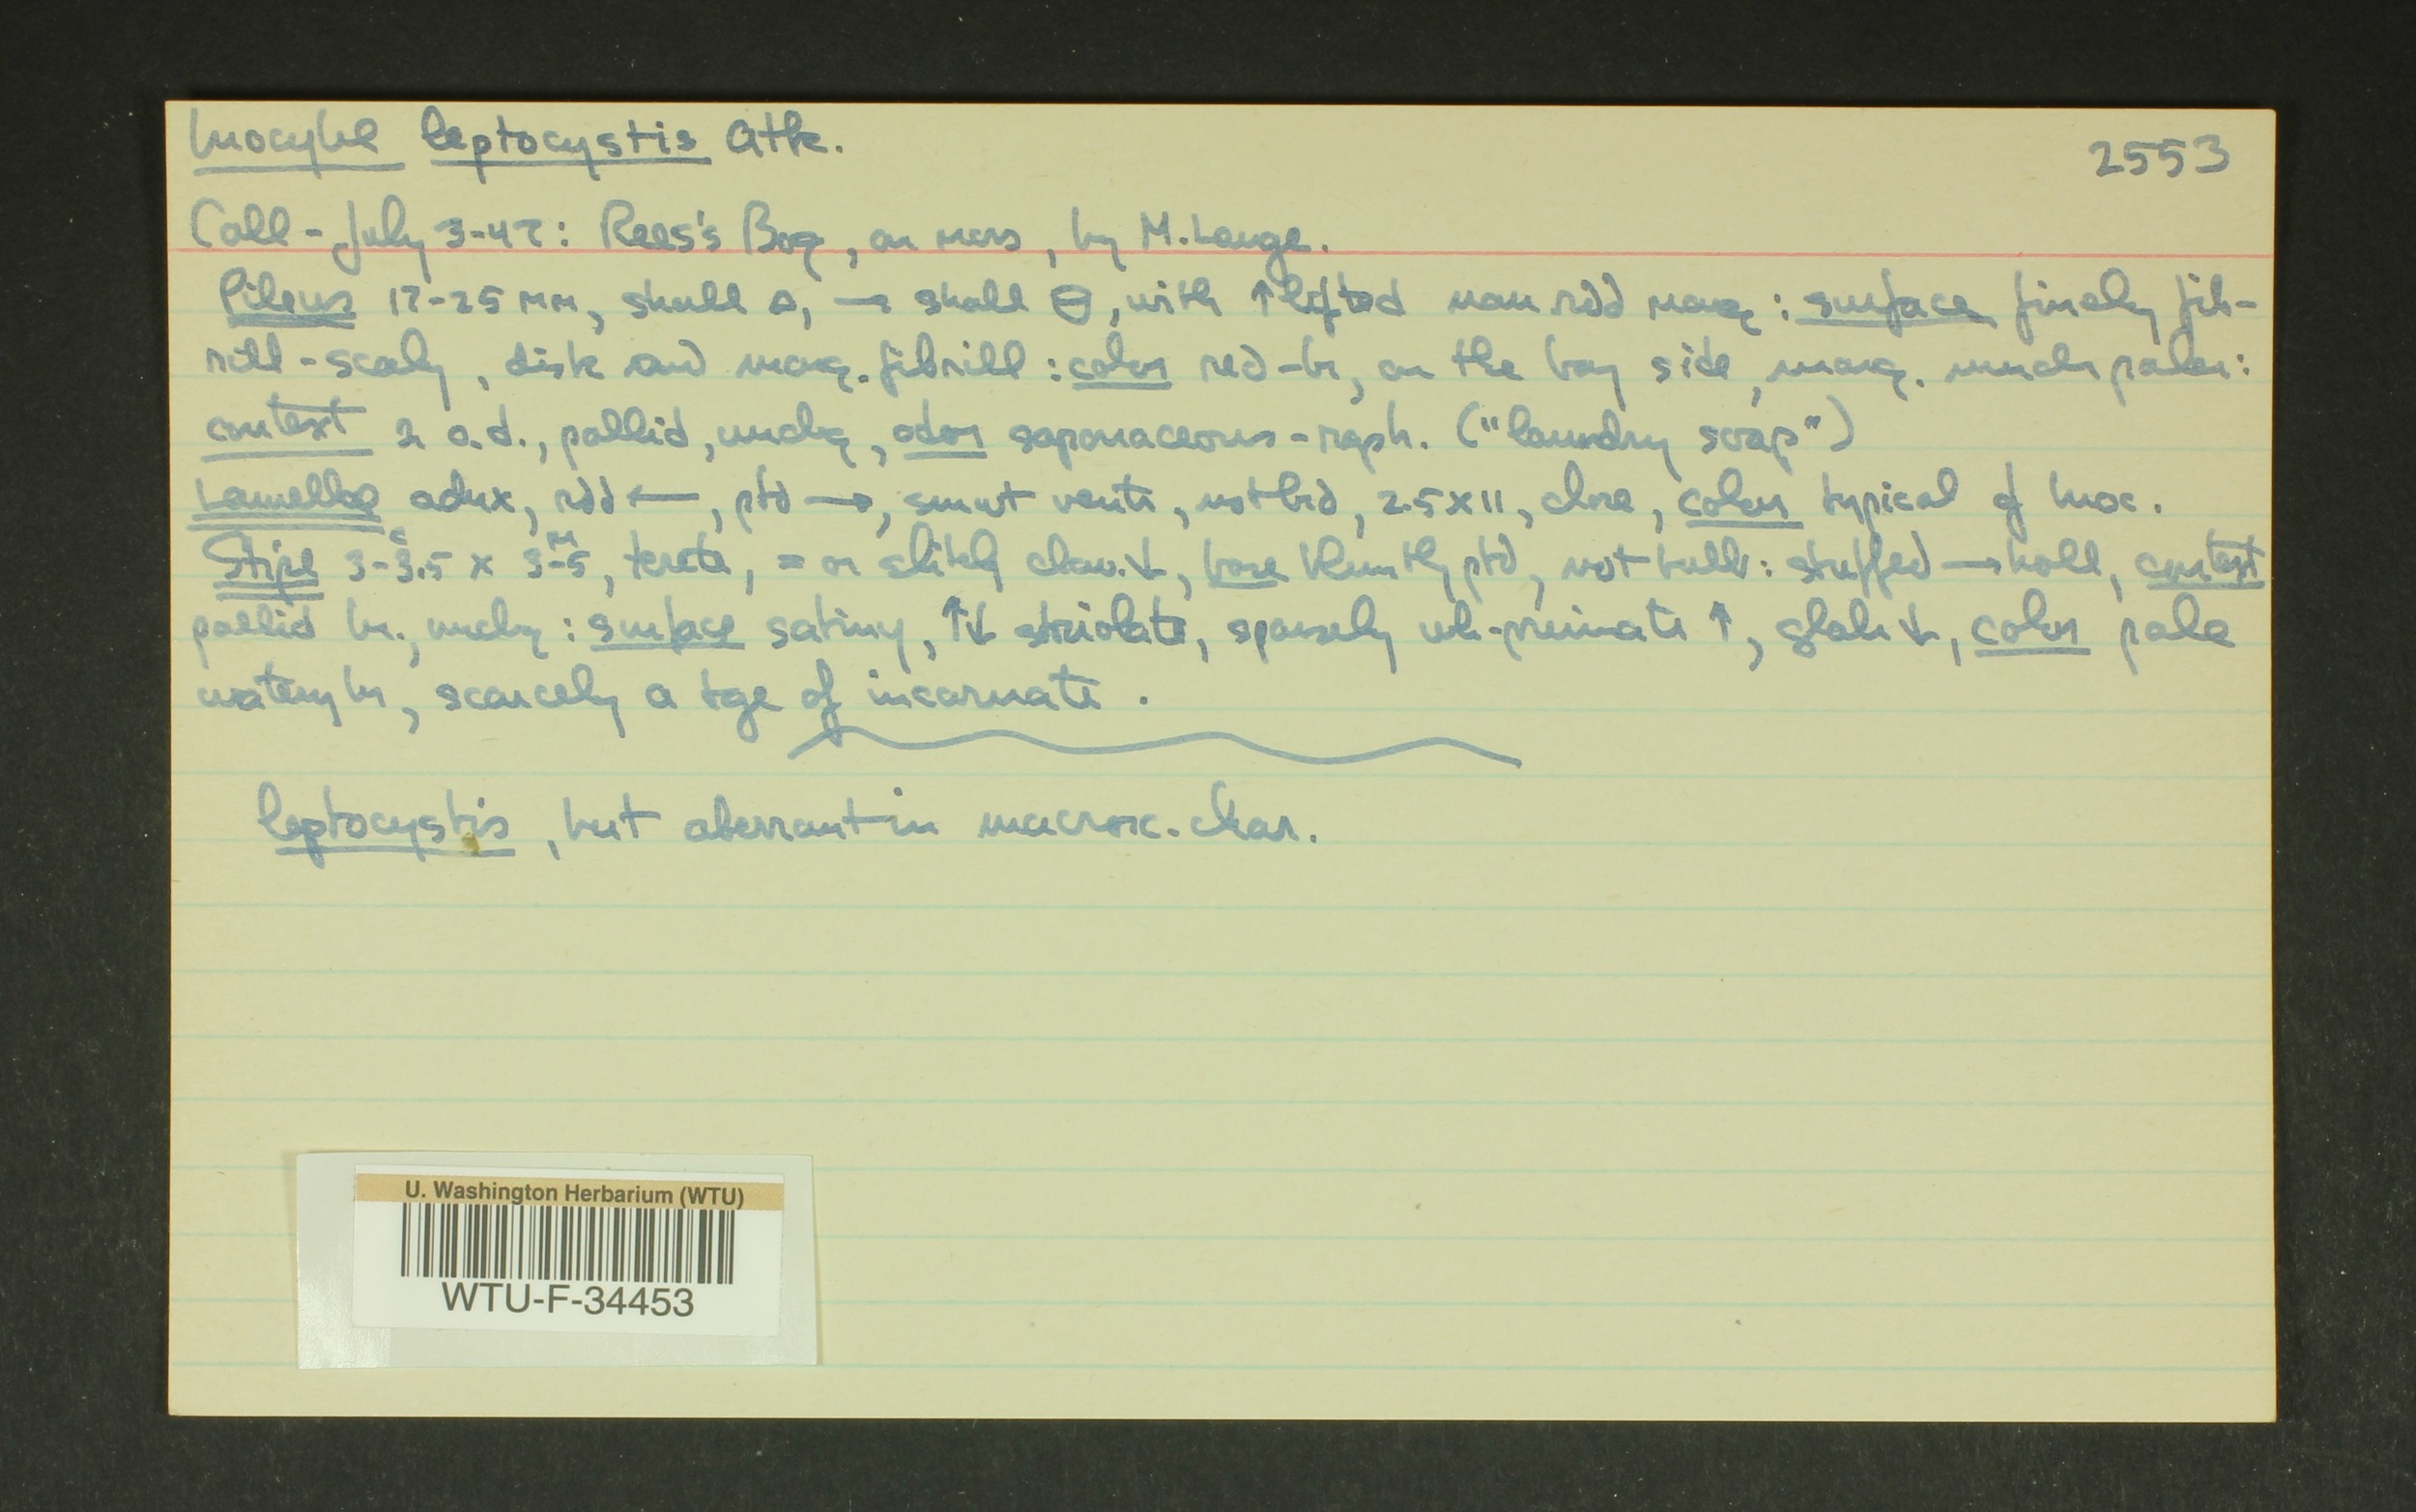 Inocybe leptocystis Atk. 2553
Coll - July 3-47: Rees's Bog, on moss, by M. Lange.
Pileus 17-25 mm, shall △, → shall ⊖, with ↑lifted narr rdd marg: surface finely fib-
rill-scaly, disk and marg. fibrill: color red-br, on the bay side, marg. much paler:
context 2 a.d., pallid, unchg, odor saponaceous-raph. ("laundry soap")
Lamellae adnx, rdd ←, ptd →, smwt ventr, not brd, 2.5 x 11, close, color typical of Inoc.
Stipe 3-3.5 c x 3-5 m, terete, = or slitely clav. ↓, base bluntly ptd, not bulb: stuffed → holl, context
pallid br., unchg: surface satiny, ↑↓ striolate, sparsely wh-pruinate ↑, glab ↓, color pale
watery br, scarcely a tge of incarnate.
leptocystis, but aberrant in macrosc. char.
U. Washington Herbarium (WTU)
WTU-F-34453